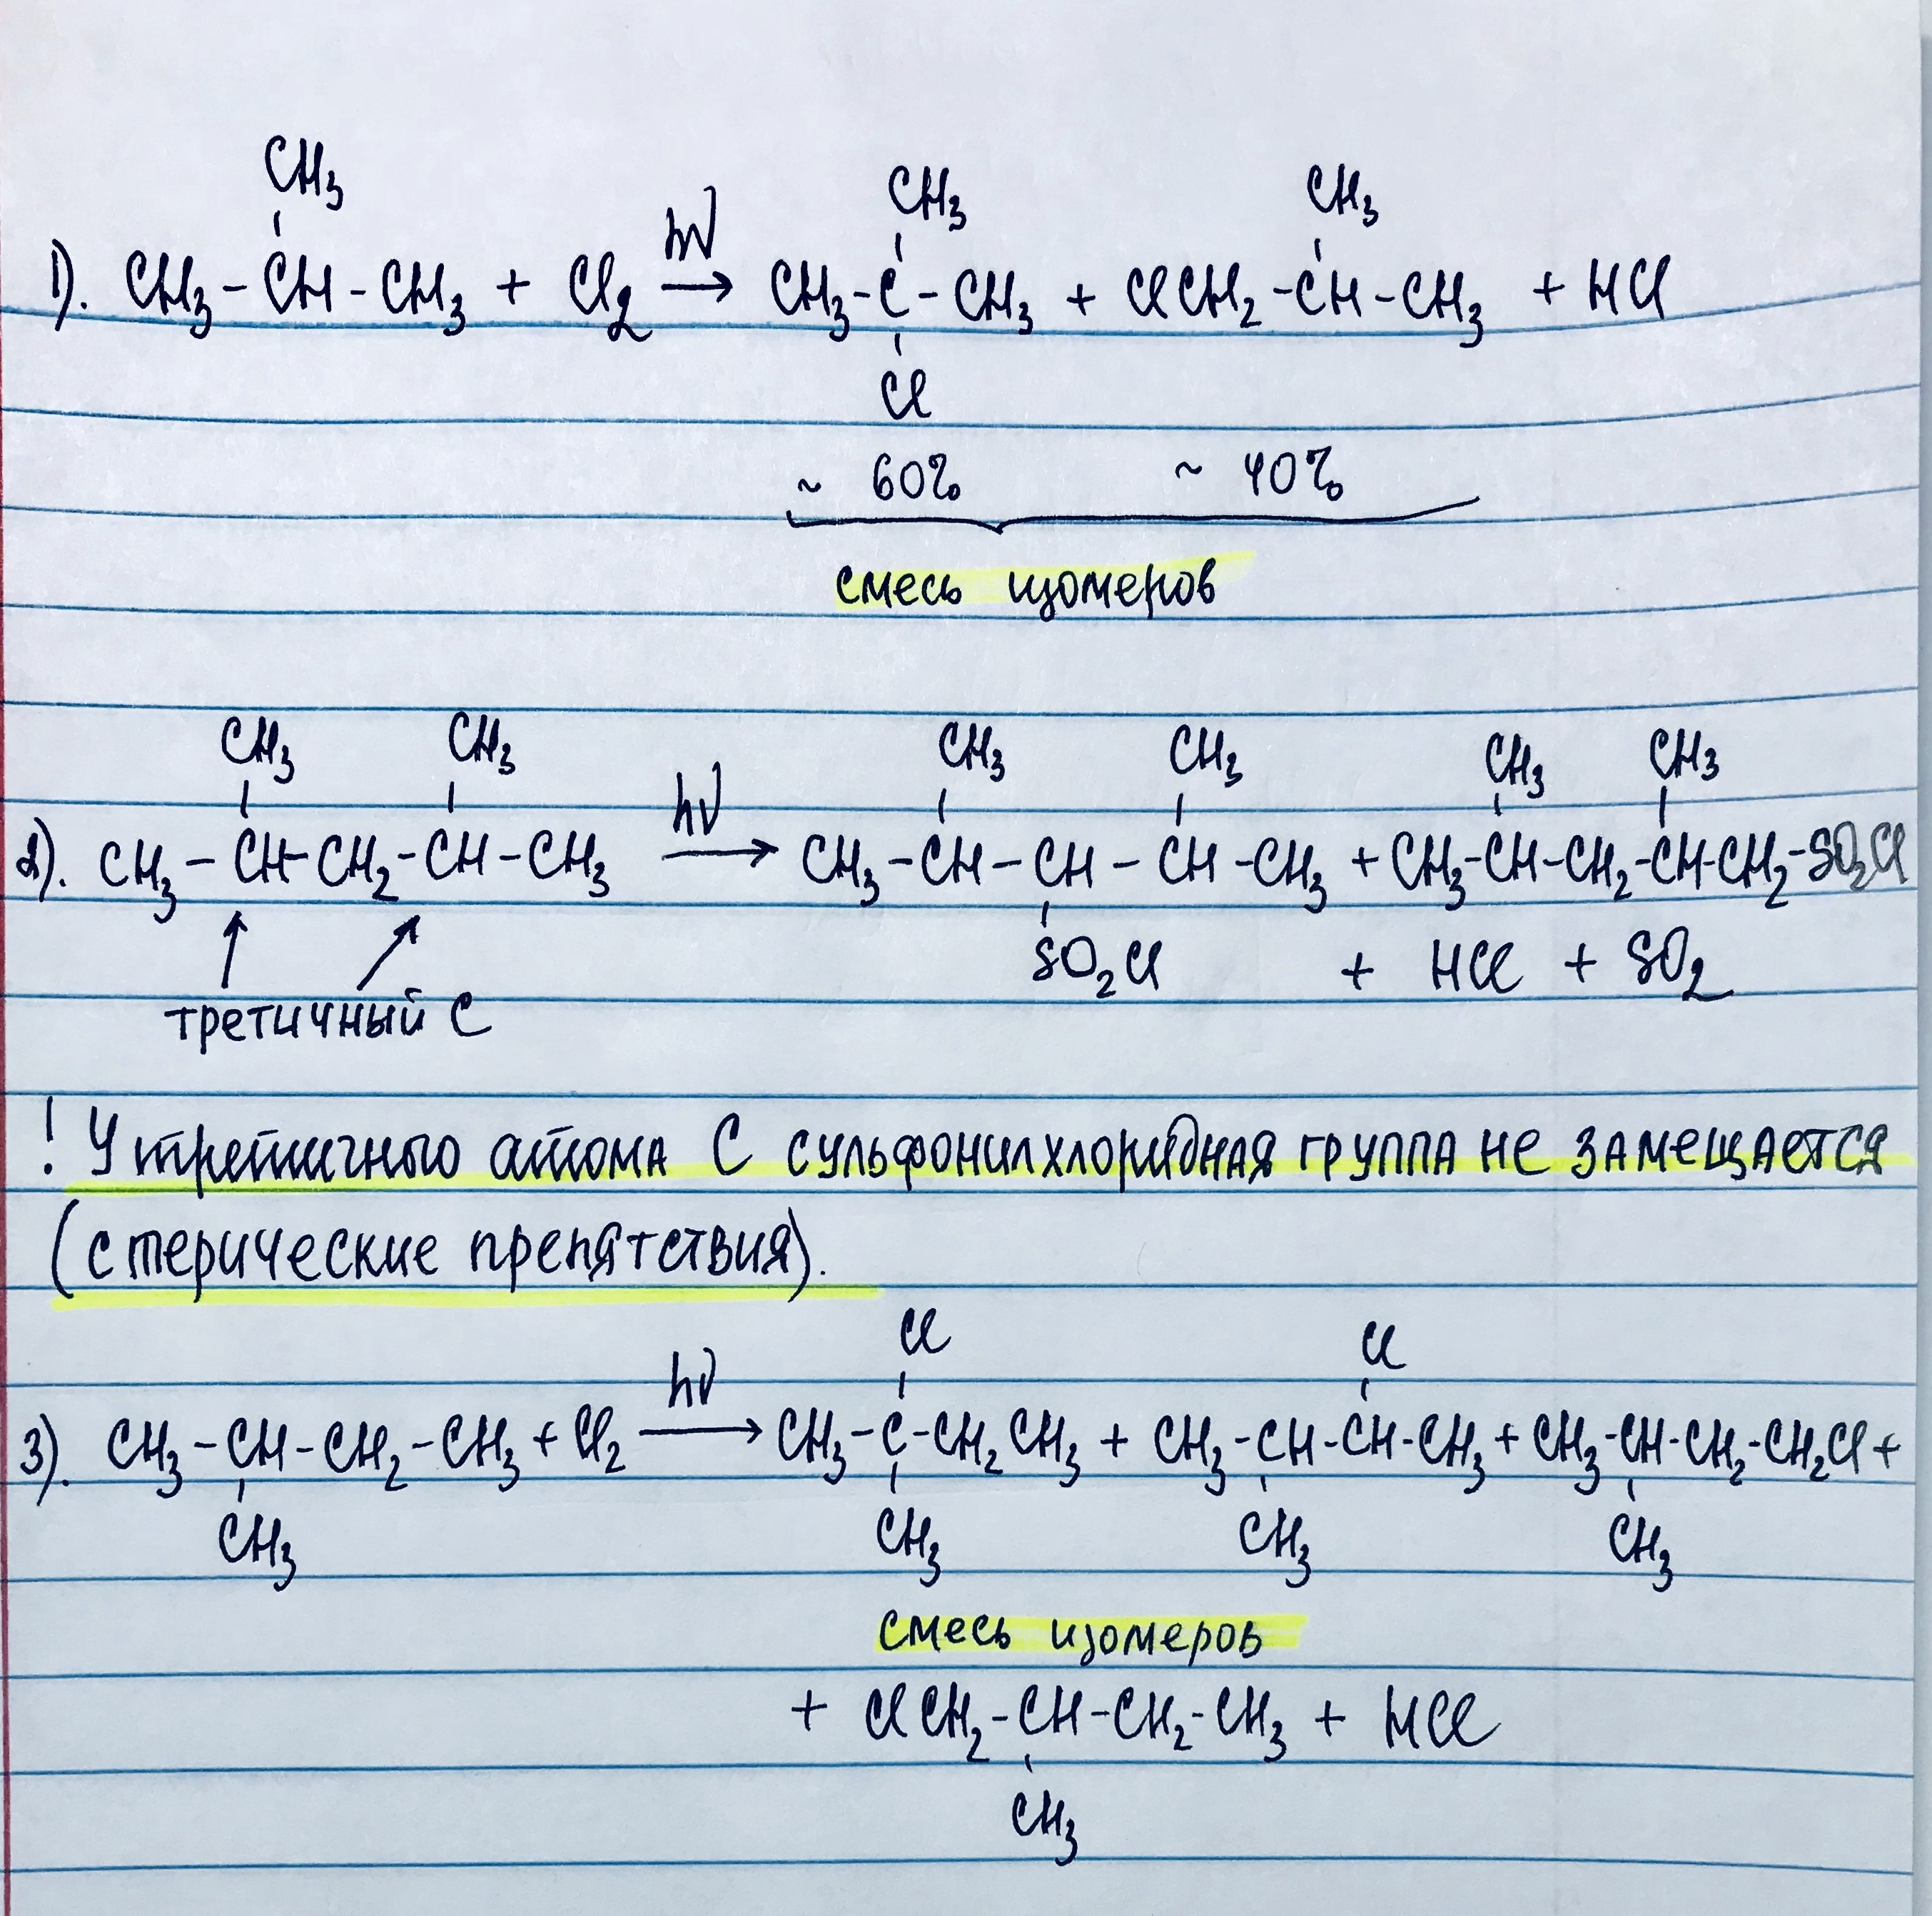 CH₃ CH₃ CH₃
1). CH₃ - CH - CH₃ + Cl₂ hν → CH₃ - C - CH₃ + ClCH₂ - CH - CH₃ + HCl
Cl
~ 60% ~ 40%
смесь изомеров
CH₃ CH₃ CH₃ CH₃ CH₃ CH₃
2). CH₃ - CH - CH₂ - CH - CH₃ hν → CH₃ - CH - CH - CH - CH₃ + CH₃ - CH - CH₂ - CH - CH₂ - SO₂Cl
SO₂Cl + HCl + SO₂
третичный C
! У третичного атома C сульфонилхлоридная группа не замещается
(стерические препятствия).
Cl Cl
3). CH₃ - CH - CH₂ - CH₃ + Cl₂ hν → CH₃ - C - CH₂CH₃ + CH₃ - CH - CH - CH₃ + CH₃ - CH - CH₂ - CH₂Cl +
CH₃ CH₃ CH₃ CH₃
смесь изомеров
+ ClCH₂ - CH - CH₂ - CH₃ + HCl
CH₃